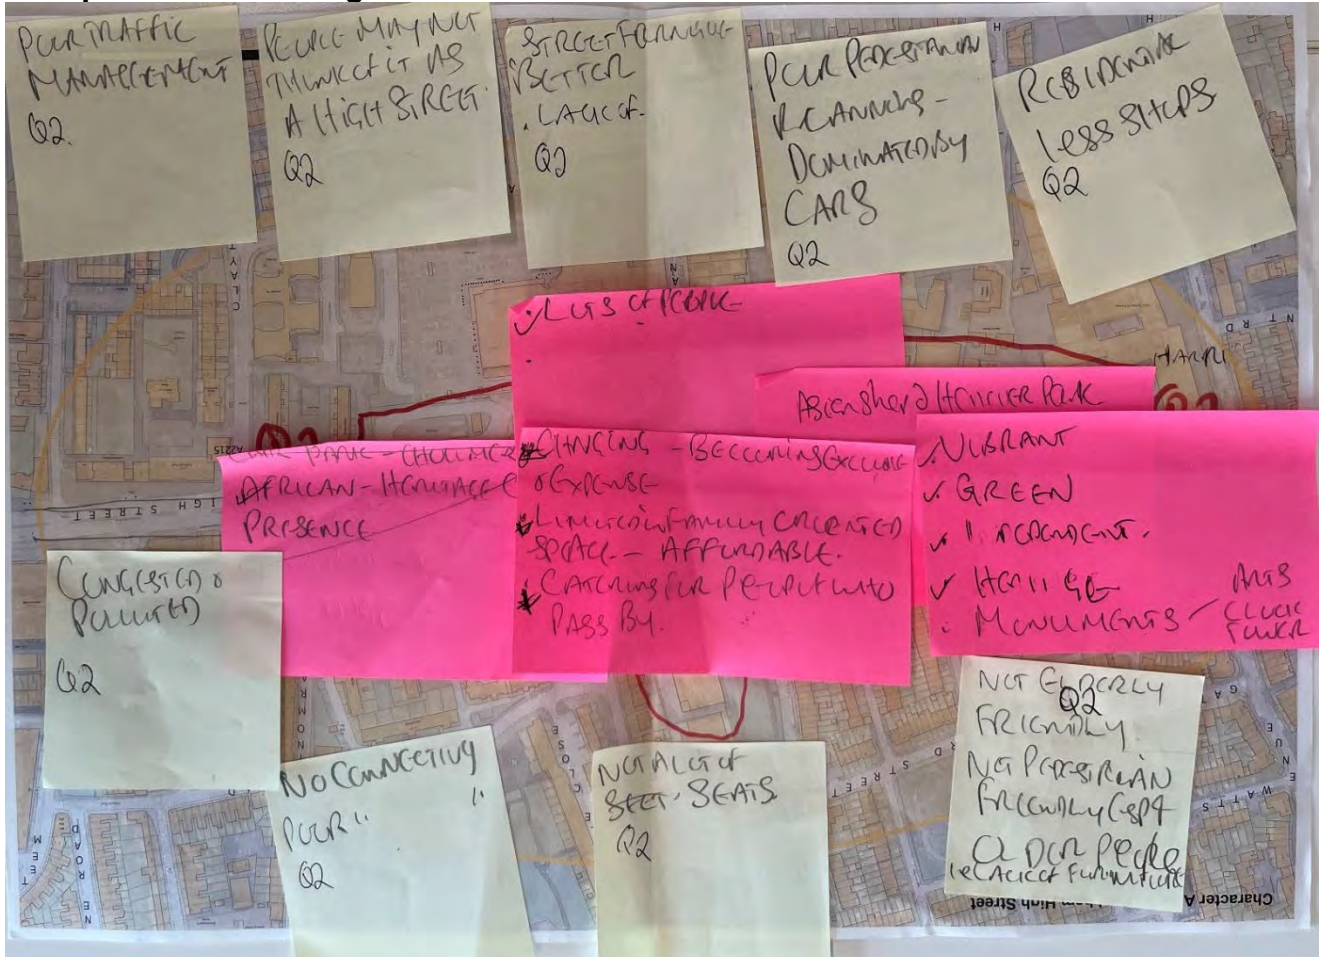 POOR TRAFFIC
MANAGEMENT
Q2.
PEOPLE MAY NOT
THINK OF IT AS
A HIGH STREET.
Q2
STREET FURNITURE
BETTER
. LACK OF.
Q2
POOR PEDESTRIAN
PLANNING -
DOMINATED BY
CARS
Q2
RESIDENTIAL
LESS SHOPS
Q2
LOTS OF PEOPLE
HARRI
PARK
AFRICAN - HERITAGE
PRESENCE
CHNGING - BECOMING EXCLUSIVE
EXPENSE
LIMITED IN FAMILY ORIENTED
SPACE - AFFORDABLE.
CATERING FOR PEOPLE WHO
PASS BY.
VIBRANT
GREEN
HERITAGE
MONUMENTS / ARTS
CLOCK
TOWER
A2215
HIGH STREET
CONGESTED &
POLLUTED
Q2
NO CONNECTIVY
POOR "
Q2
NOT A LOT OF
SEATS
Q2
NOT ELDERLY
Q2
FRIENDLY
NOT PEDESTRIAN
FRIENDLY ESP 4
OLDER PEOPLE
ie LACK OF FURNITURE
CLOSE
STREET
WATTS
Character A
ham High Street